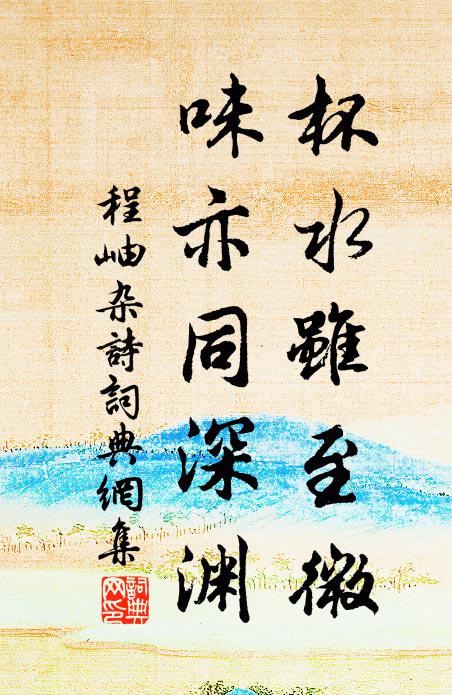 杯水雖至微
味亦同深淵
程岫杂詩詞典網集
詞典